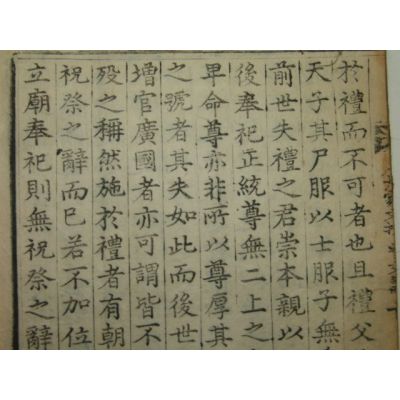 於禮而不可者也且禮父
天子其尸服以士服子無
前世失禮之君崇本親以
後奉祀正統尊無二上之
卑命尊亦非所以尊厚其
之號者其失如此而後世
增官廣國者亦可謂皆不
歿之稱然施於禮者有朝
祝祭之辭而已若不加位
立廟奉祀則無祝祭之辭